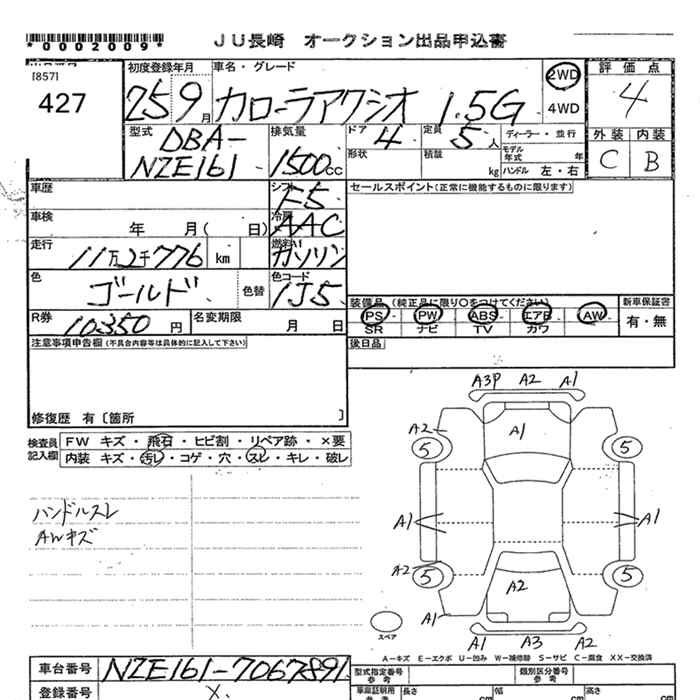 *0002009*
JU長崎 オークション出品申込書
[857]
427
初度登録年月
25 9月
車名・グレード
カローラアクシオ 1.5G
2WD
4WD
評価点
4
型式
DBA-
NZE161
排気量
1500cc
ドア 4
定員 5人
ディーラー・並行
形状
積載 kg
モデル年式 年
ハンドル 左・右
外装 内装
C B
車歴
シフト
F5
セールスポイント(正常に機能するものに限ります)
車検 年 月( 日)
冷房
AAC
走行
11万2千776 km
燃料
ガソリン
色
ゴールド
色替
色コード
1J5
装備品 (純正品に限り○をつけてください)
新車保証書
PS PW ABS エアB AW
SR ナビ TV カワ
有・無
R券
10350円
名変期限 月 日
後日品
注意事項申告欄(不具合内容等は具体的に記入して下さい)
修復歴 有〔箇所 〕
検査員記入欄
FW キズ・飛石・ヒビ割・リペア跡・×要
内装 キズ・汚レ・コゲ・穴・スレ・キレ・破レ
ハンドルスレ
AWキズ
A3P A2 A1
A2
A1
5 5
A1 A1
A2
5 5
A2
A1
A1 A3 A2
スペア
A−キズ E−エクボ U−凹み W−補修跡 S−サビ C−腐食 XX−交換済
車台番号
NZE161-7067891
型式指定番号 参考
類別区分番号 参考
登録番号
X.
車庫証明用 参考
長さ cm
幅 cm
高さ cm